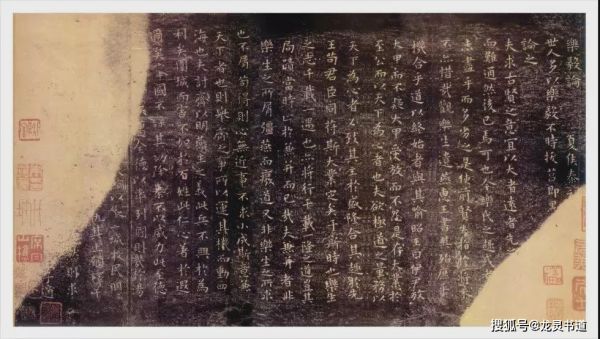 樂毅論 夏侯泰
世人多以樂毅不時拔莒即墨
論之
夫求古賢之意宜以大者遠者先
而難通然後已焉可也今樂氏之趣或者
未盡乎而多劣之是使前賢失指於將
不亦惜哉觀樂生遺燕惠王書其殆庶乎
機合乎道以終始者與其喻昭王曰伊尹放
大甲而不疑大甲受放而不怨是存大業於
至公而以天下為心者也夫欲極道之量務以
天下為心者必致其主於盛隆合其趣於先
王苟君臣同符斯大業定矣于斯時也樂生
之志千載一遇也亦將行千載一隆之道豈其
局蹟當時止於兼并而已哉夫兼并者非
樂生之所屑彊燕而廢道又非樂生之所求
也不屑苟得則心無近事不求小成斯意兼
天下者也則舉齊之事所以運其機而動四
海也夫討齊以明燕主之義此兵不興於為
利矣圍城而害不加於百姓此仁心著於遐
邇矣舉國不謀其功除暴不以威力此至德
以率列國則幾於湯
以縱二城牧民明
即墨
搜狐号@龙灵书道